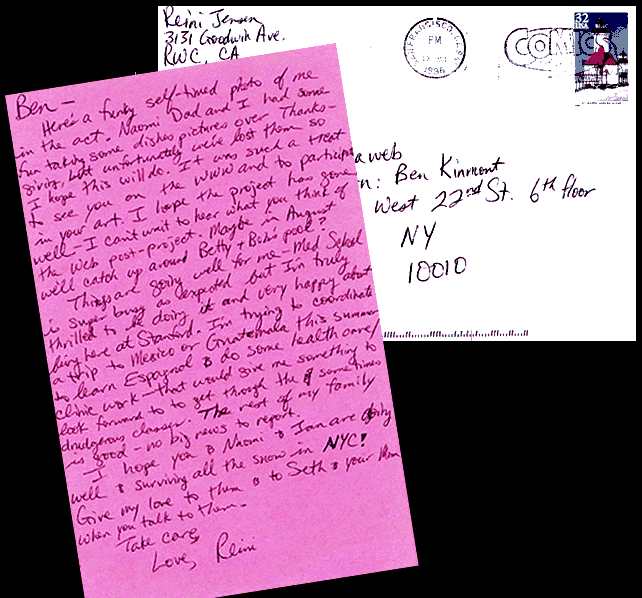 Reini Jensen
3131 Goodwin Ave.
RWC, CA
SAN FRANCISCO, CA
PM
1996
COMICS
32
USA
a web
n: Ben Kinmont
West 22nd St. 6th floor
NY
10010
Ben —
Here's a funky self-timed photo of me
in the act. Naomi Dad and I had some
fun taking some dishes pictures over Thanks-
giving, but unfortunately we've lost them so
I hope this will do. It was such a treat
to see you on the WWW and to participate
in your art. I hope the project has gone
well – I can't wait to hear what you think of
the web post-project. Maybe in August
we'll catch up around Betty + Bob's pool?
Things are going well for me. Med School
is super busy as expected but I'm truly
thrilled to be doing it and very happy about
being here at Stanford. I'm trying to coordinate
a trip to Mexico or Guatemala this summer
to learn Espagnol & do some health care/
clinic work – that would give me something to
look forward to to get though the sometimes
drudgerous classes. The rest of my family
is good – no big news to report.
I hope you & Naomi & Ian are doing
well & surviving all the snow in NYC!
Give my love to them & to Seth & your Mom
when you talk to them.
Take care,
Love, Reini